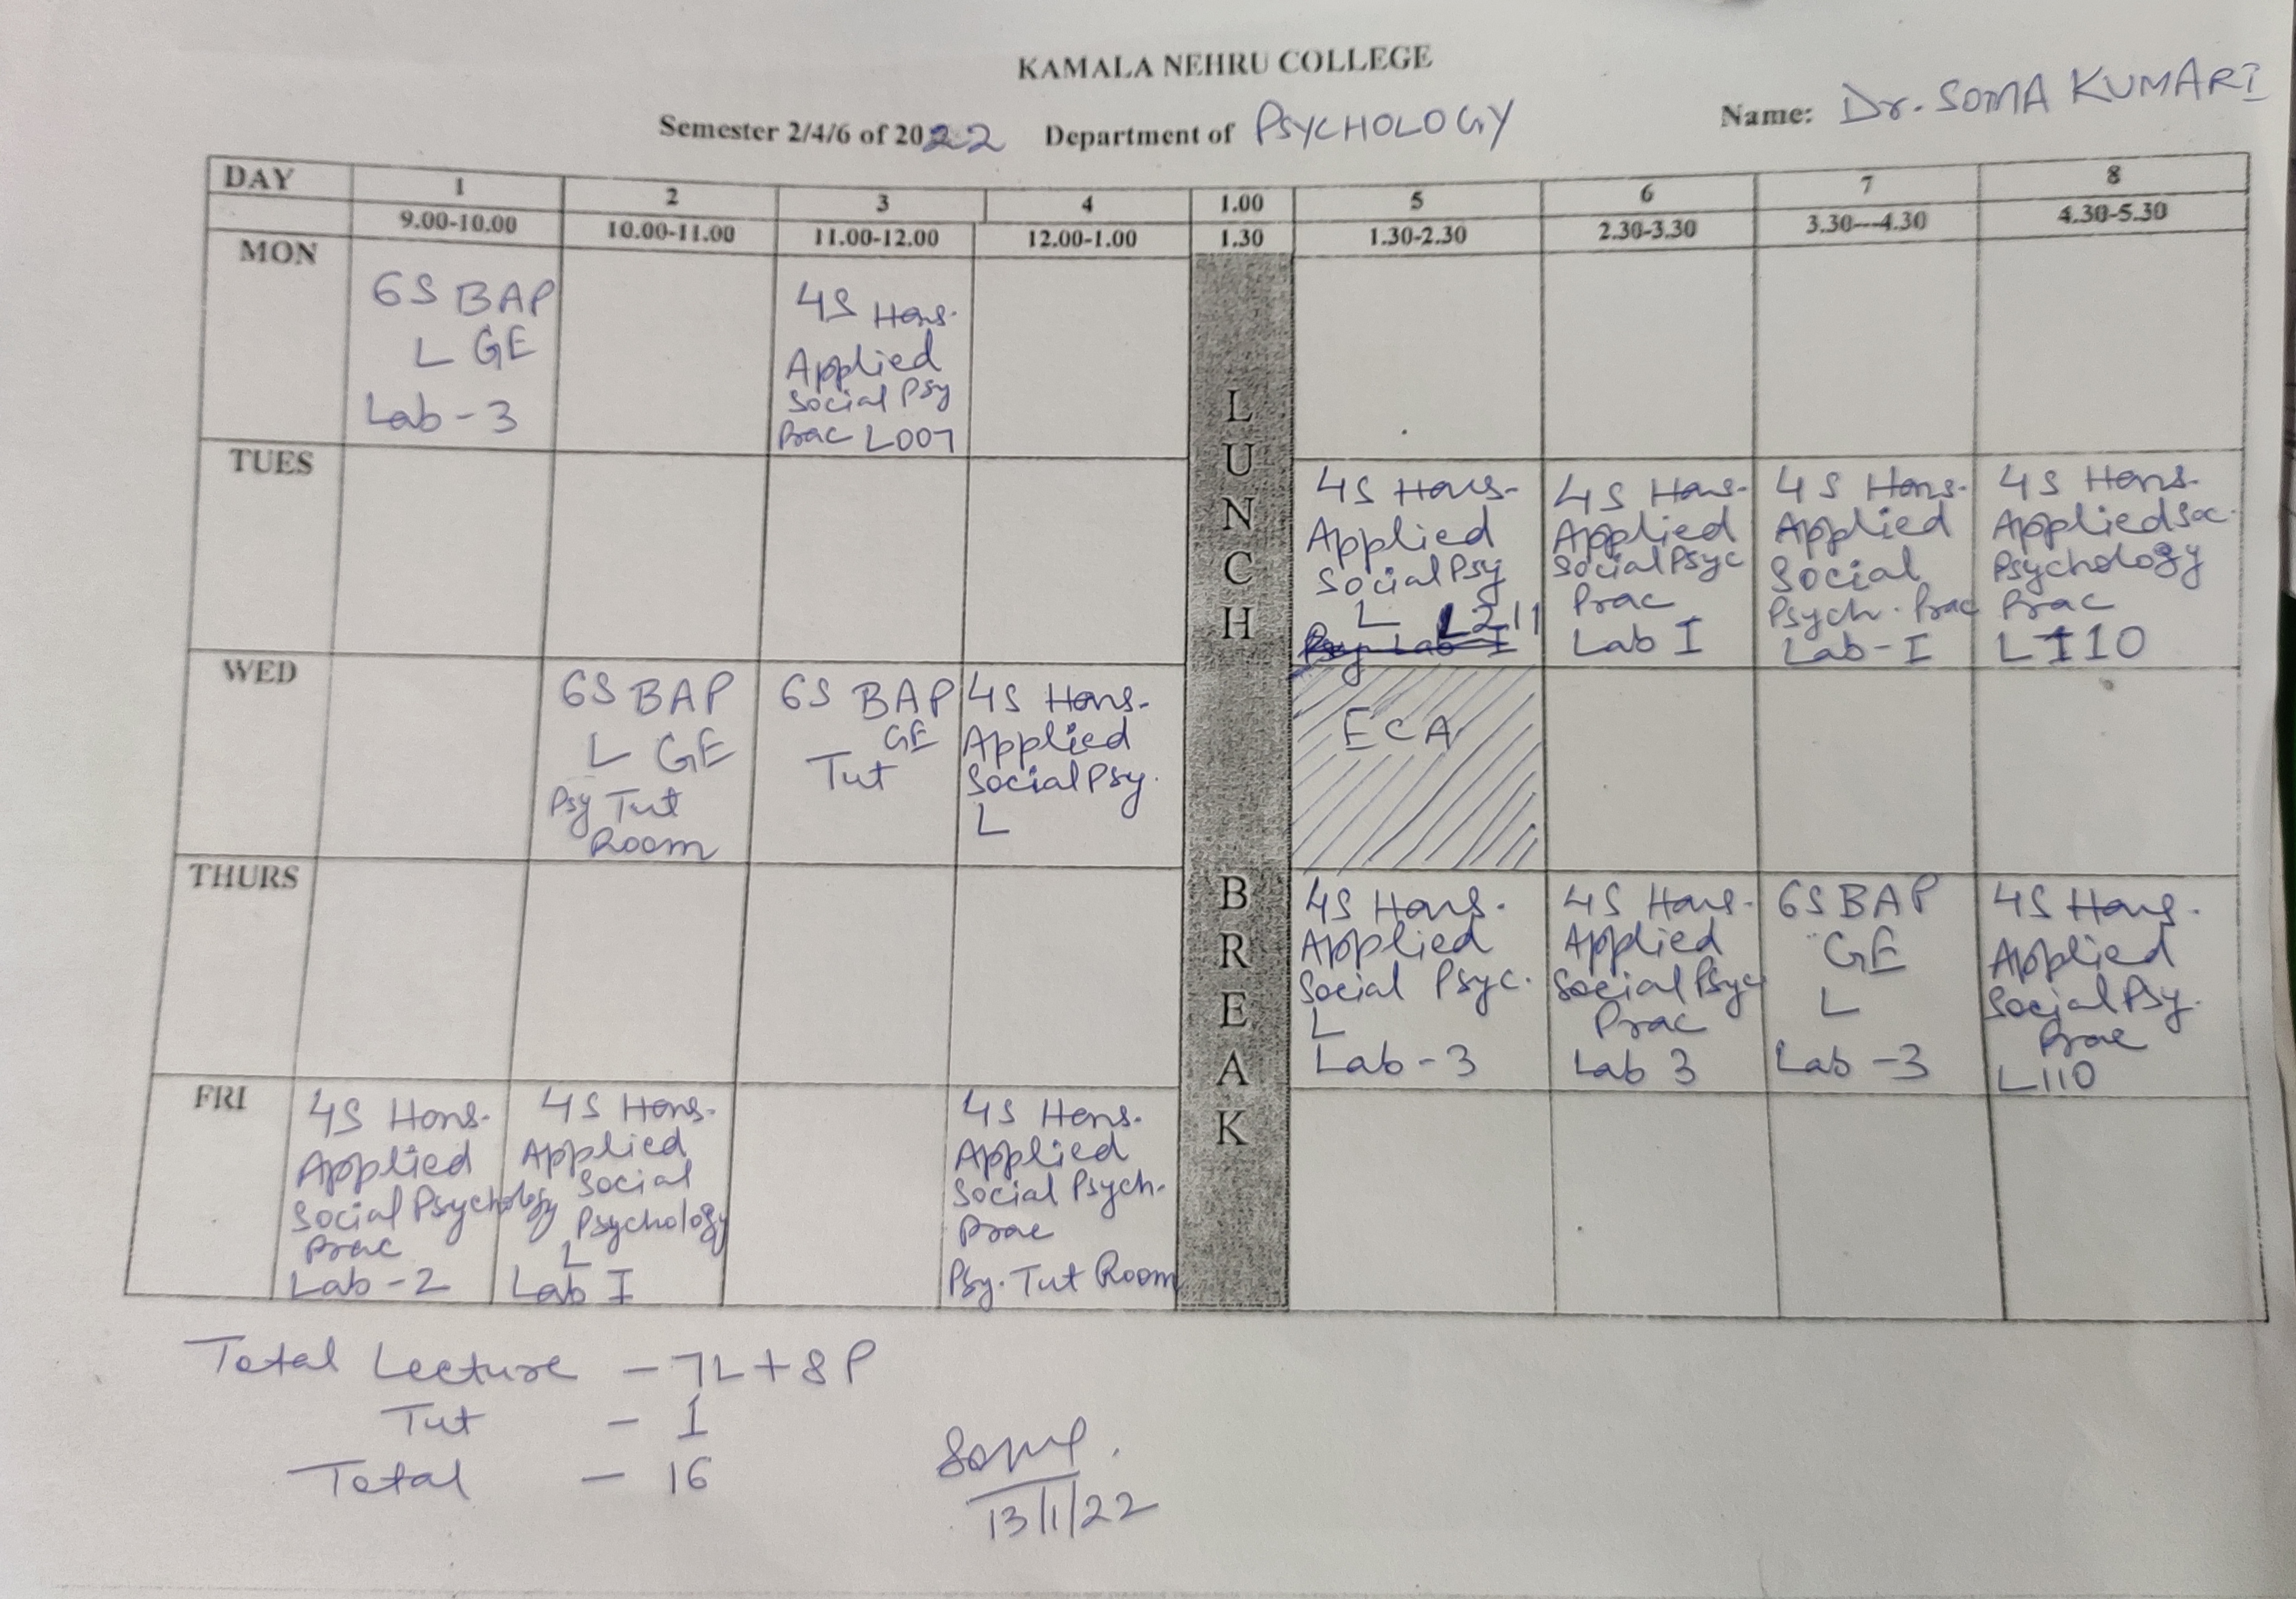 KAMALA NEHRU COLLEGE
Semester 2/4/6 of 2022 Department of PSYCHOLOGY Name: Dr. SOMA KUMARI
DAY 1 2 3 4 1.00 5 6 7 8
9.00-10.00 10.00-11.00 11.00-12.00 12.00-1.00 1.30 1.30-2.30 2.30-3.30 3.30---4.30 4.30-5.30
LUNCH BREAK
MON
6S BAP
L GE
Lab-3
4S Hons.
Applied
Social Psy
Prac L007
TUES
4S Hons-
Applied
Social Psy
L L211
Psy Lab I
4S Hons-
Applied
Social Psyc
Prac
Lab I
4S Hons-
Applied
Social
Psych. Prac
Lab-I
4S Hons-
Applied Soc.
Psychology
Prac
L110
WED
6S BAP
L GE
Psy Tut
Room
6S BAP
GE
Tut
4S Hons-
Applied
Social Psy.
L
ECA
THURS
4S Hons.
Applied
Social Psyc.
L
Lab-3
4S Hons-
Applied
Social Psyc
Prac
Lab 3
6S BAP
GE
L
Lab-3
4S Hons.
Applied
Social Psy.
Prac
L110
FRI
4S Hons-
Applied
Social Psychology
Prac
Lab-2
4S Hons-
Applied
Social
Psychology
L
Lab I
4S Hons.
Applied
Social Psych-
Prac
Psy. Tut Room
Total Lecture - 7L+8P
Tut - 1
Total - 16
13/1/22